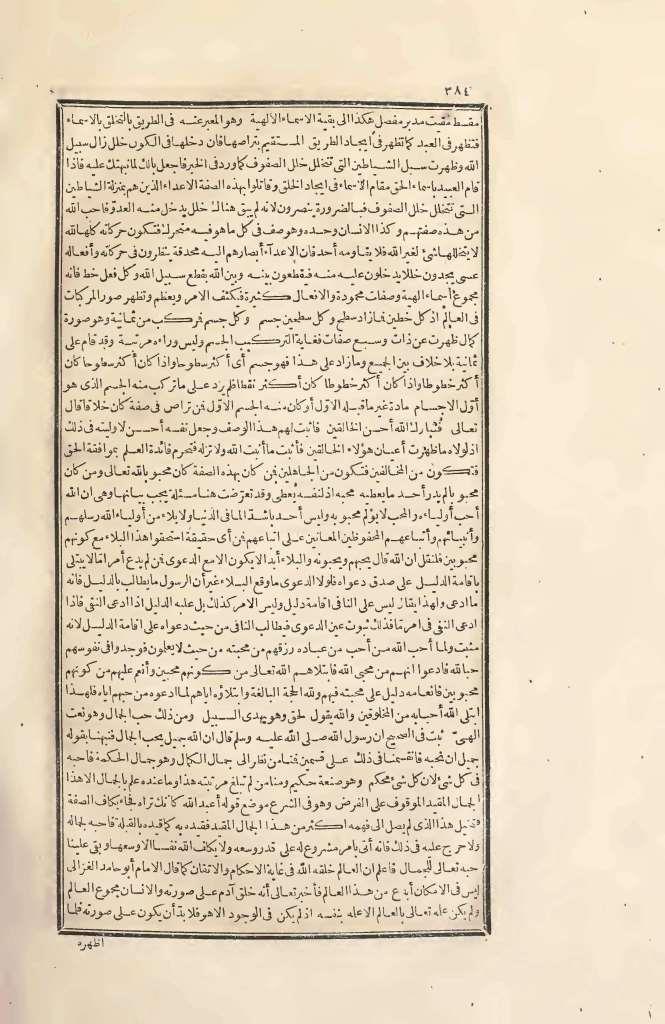 ٣٨٤
مقسط مقيت مدبر مفصل هكذا الى بقية الاسماء الالهية وهو المعبر عنه فى الطريق بالتخلق بالاسماء
فتظهر فى العبد كما تظهر فى ايجاد الطريق المستقيم بتراصها فان دخلها فى الكون خلل زال سبيل
الله وظهرت سبل الشياطين التى تتخلل خلل الصفوف كما ورد فى الخبر فاجعل بالك لما نبهتك عليه فاذا
قام العبد باسماء الحق مقام الاسماء فى ايجاد الخلق وقاتلوا بهذه الصفة الاعداء الذين هم بمنزلة الشياطين
التى تتخلل خلل الصفوف فبالضرورة ينصرون لانه لم يبق هنالك خلل يدخل منه العدو فاحب الله
من هذه صفتهم وكذا الانسان وحده وهو صف فى كل ما هو فيه متحرك فتكون حركاته كلها لله
لا يتخللها شئ لغير الله فلا يقاومه أحد فان الاعداء أبصارهم اليه محدقة ينظرون فى حركاته وأفعاله
عسى يجدون خللا يدخلون عليه منه فيقطعون بينه وبين الله بقطع سبيل الله وكل فعل خط فانه
مجموع أسماء الهية وصفات محمودة والافعال كثيرة فيكثف الامر ويعظم وتظهر صور المركبات
فى العالم اذ كل خطين فما زاد سطح وكل سطحين جسم وكل جسم فمركب من ثمانية وهو صورة
كمال ظهرت عن ذات وسبع صفات فغاية التركيب الجسم وليس وراءه مرتبة وقد قام على
ثمانية بلا خلاف بين الجميع وما زاد على هذا فهو جسم أى أكثر سطوحا واذا كان أكثر سطوحا كان
أكثر خطوطا واذا كان أكثر خطوطا كان أكثر نقطا فلم يزد على ما تركب منه الجسم الذى هو
أول الاجسام مادة غير ما قبله الاول أو كان منه الجسم الاول فمن تراص فى صفة كان خلاقا قال
تعالى فتبارك الله أحسن الخالقين فأثبت لهم هذا الوصف وجعل نفسه أحسن لاوليته فى ذلك
اذ لولاه ما ظهرت أعيان هؤلاء الخالقين فأثبت ما أثبت الله ولا تزله فتحرم فائدة العلم بموافقة الحق
فتكون من المخالفين فتكون من الجاهلين فمن كان بهذه الصفة كان محبوبا لله تعالى ومن كان
محبوبا لم يدر أحد ما يعطيه محبه اذ لنفسه يعطى وقد تعرضت هنا مسئلة يجب بيانها وهى ان الله
أحب أولياءه والمحب لا يؤلم محبوبه وليس أحد بأشد ألما فى الدنيا ولا بلاء من أولياء الله رسلهم
وأنبيائهم وأتباعهم المحفوظين المعانين على اتباعهم فمن أى حقيقة استحقوا هذا البلاء مع كونهم
محبوبين فلنقل ان الله قال يحبهم ويحبونه والبلاء أبدا لا يكون الا مع الدعوى فمن لم يدع أمرا ما لا يبتلى
باقامة الدليل على صدق دعواه فلولا الدعوى ما وقع البلاء غير أن الرسول ما يطالب بالدليل فانه
ما ادعى ولهذا يقال ليس على النافى اقامة دليل وليس الامر كذلك بل عليه الدليل اذا ادعى النفى فاذا
ادعى النفى فى امر ما فذلك ثبوت عين الدعوى فيطالب النافى من حيث دعواه على اقامة الدليل لانه
مثبت ولما أحب الله من أحب من عباده رزقهم من محبته من حيث لا يعلمون فوجدوا فى نفوسهم
حبا لله فادعوا انهم من محبى الله فابتلاهم الله تعالى من كونهم محبين وأنعم عليهم من كونهم
محبوبين فانعامه دليل على محبته فيهم ولله الحجة البالغة وابتلاؤه اياهم لما ادعوه من حبهم اياه فلهذا
ابتلى الله أحبابه من المخلوقين والله يقول الحق وهو يهدى السبيل ومن ذلك حب الجمال وهو نعت
الهىّ ثبت فى الصحيح ان رسول الله صلى الله عليه وسلم قال ان الله جميل يحب الجمال فنبهنا بقوله
جميل ان نحبه فانقسمنا فى ذلك على قسمين فمنا من نظر الى جمال الكمال وهو جمال الحكمة فاحبه
فى كل شئ لان كل شئ محكم وهو صنعة حكيم ومنا من لم تبلغ مرتبته هذا وما عنده علم بالجمال الا هذا
الجمال المقيد الموقوف على الغرض وهو فى الشرع موضع قوله أعبد الله كأنك تراه فجاء بكاف الصفة
فتخيل هذا الذى لم يصل الى فهمه أكثر من هذا الجمال المقيد فقيده به كما قيده بالقبلة فاحبه لجماله
ولا حرج عليه فى ذلك فانه أتى بأمر مشروع له على قدر وسعه ولا يكلف الله نفسا الا وسعها وبقى علينا
حبه تعالى للجمال فاعلم ان العالم خلقه الله فى غاية الاحكام والاتقان كما قال الامام أبو حامد الغزالى
ليس فى الامكان أبدع من هذا العالم فأخبر تعالى أنه خلق آدم على صورته والانسان مجموع العالم
ولم يكن علمه تعالى بالعالم الا علمه بنفسه اذ لم يكن فى الوجود الا هو فلا بد أن يكون على صورته فلما
اظهره